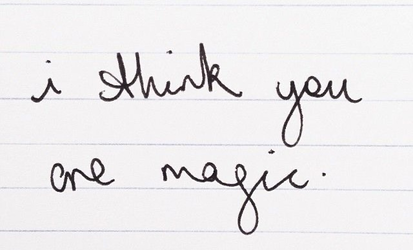 i think you
are magic.